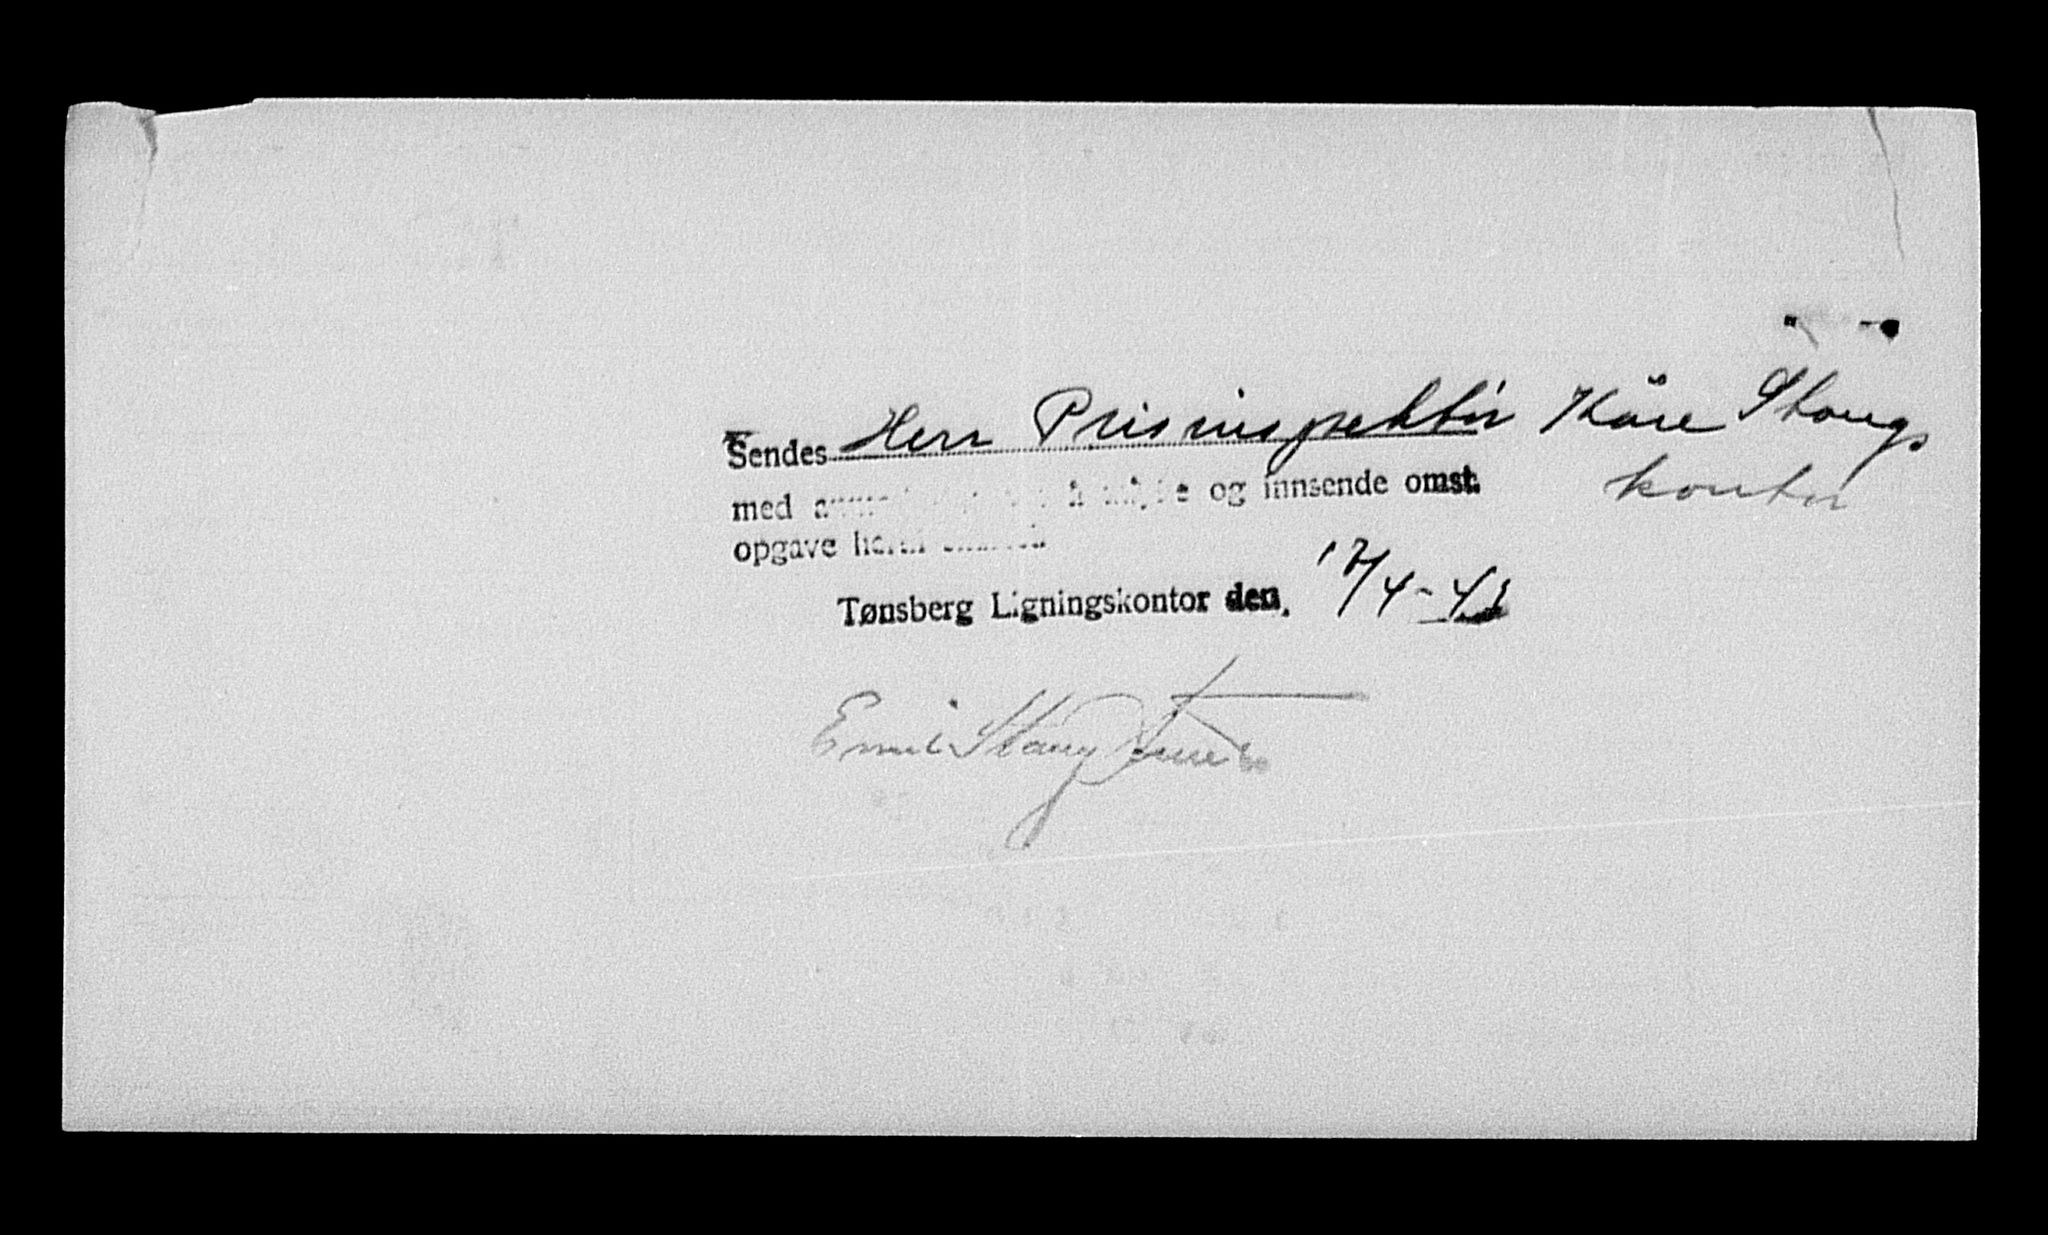 Sendes Herr Prisinspektør Kåre Stangs
kontor
med og innsende omst.
opgave hertil
Tønsberg Ligningskontor den. 17/4-43
Emil Stang